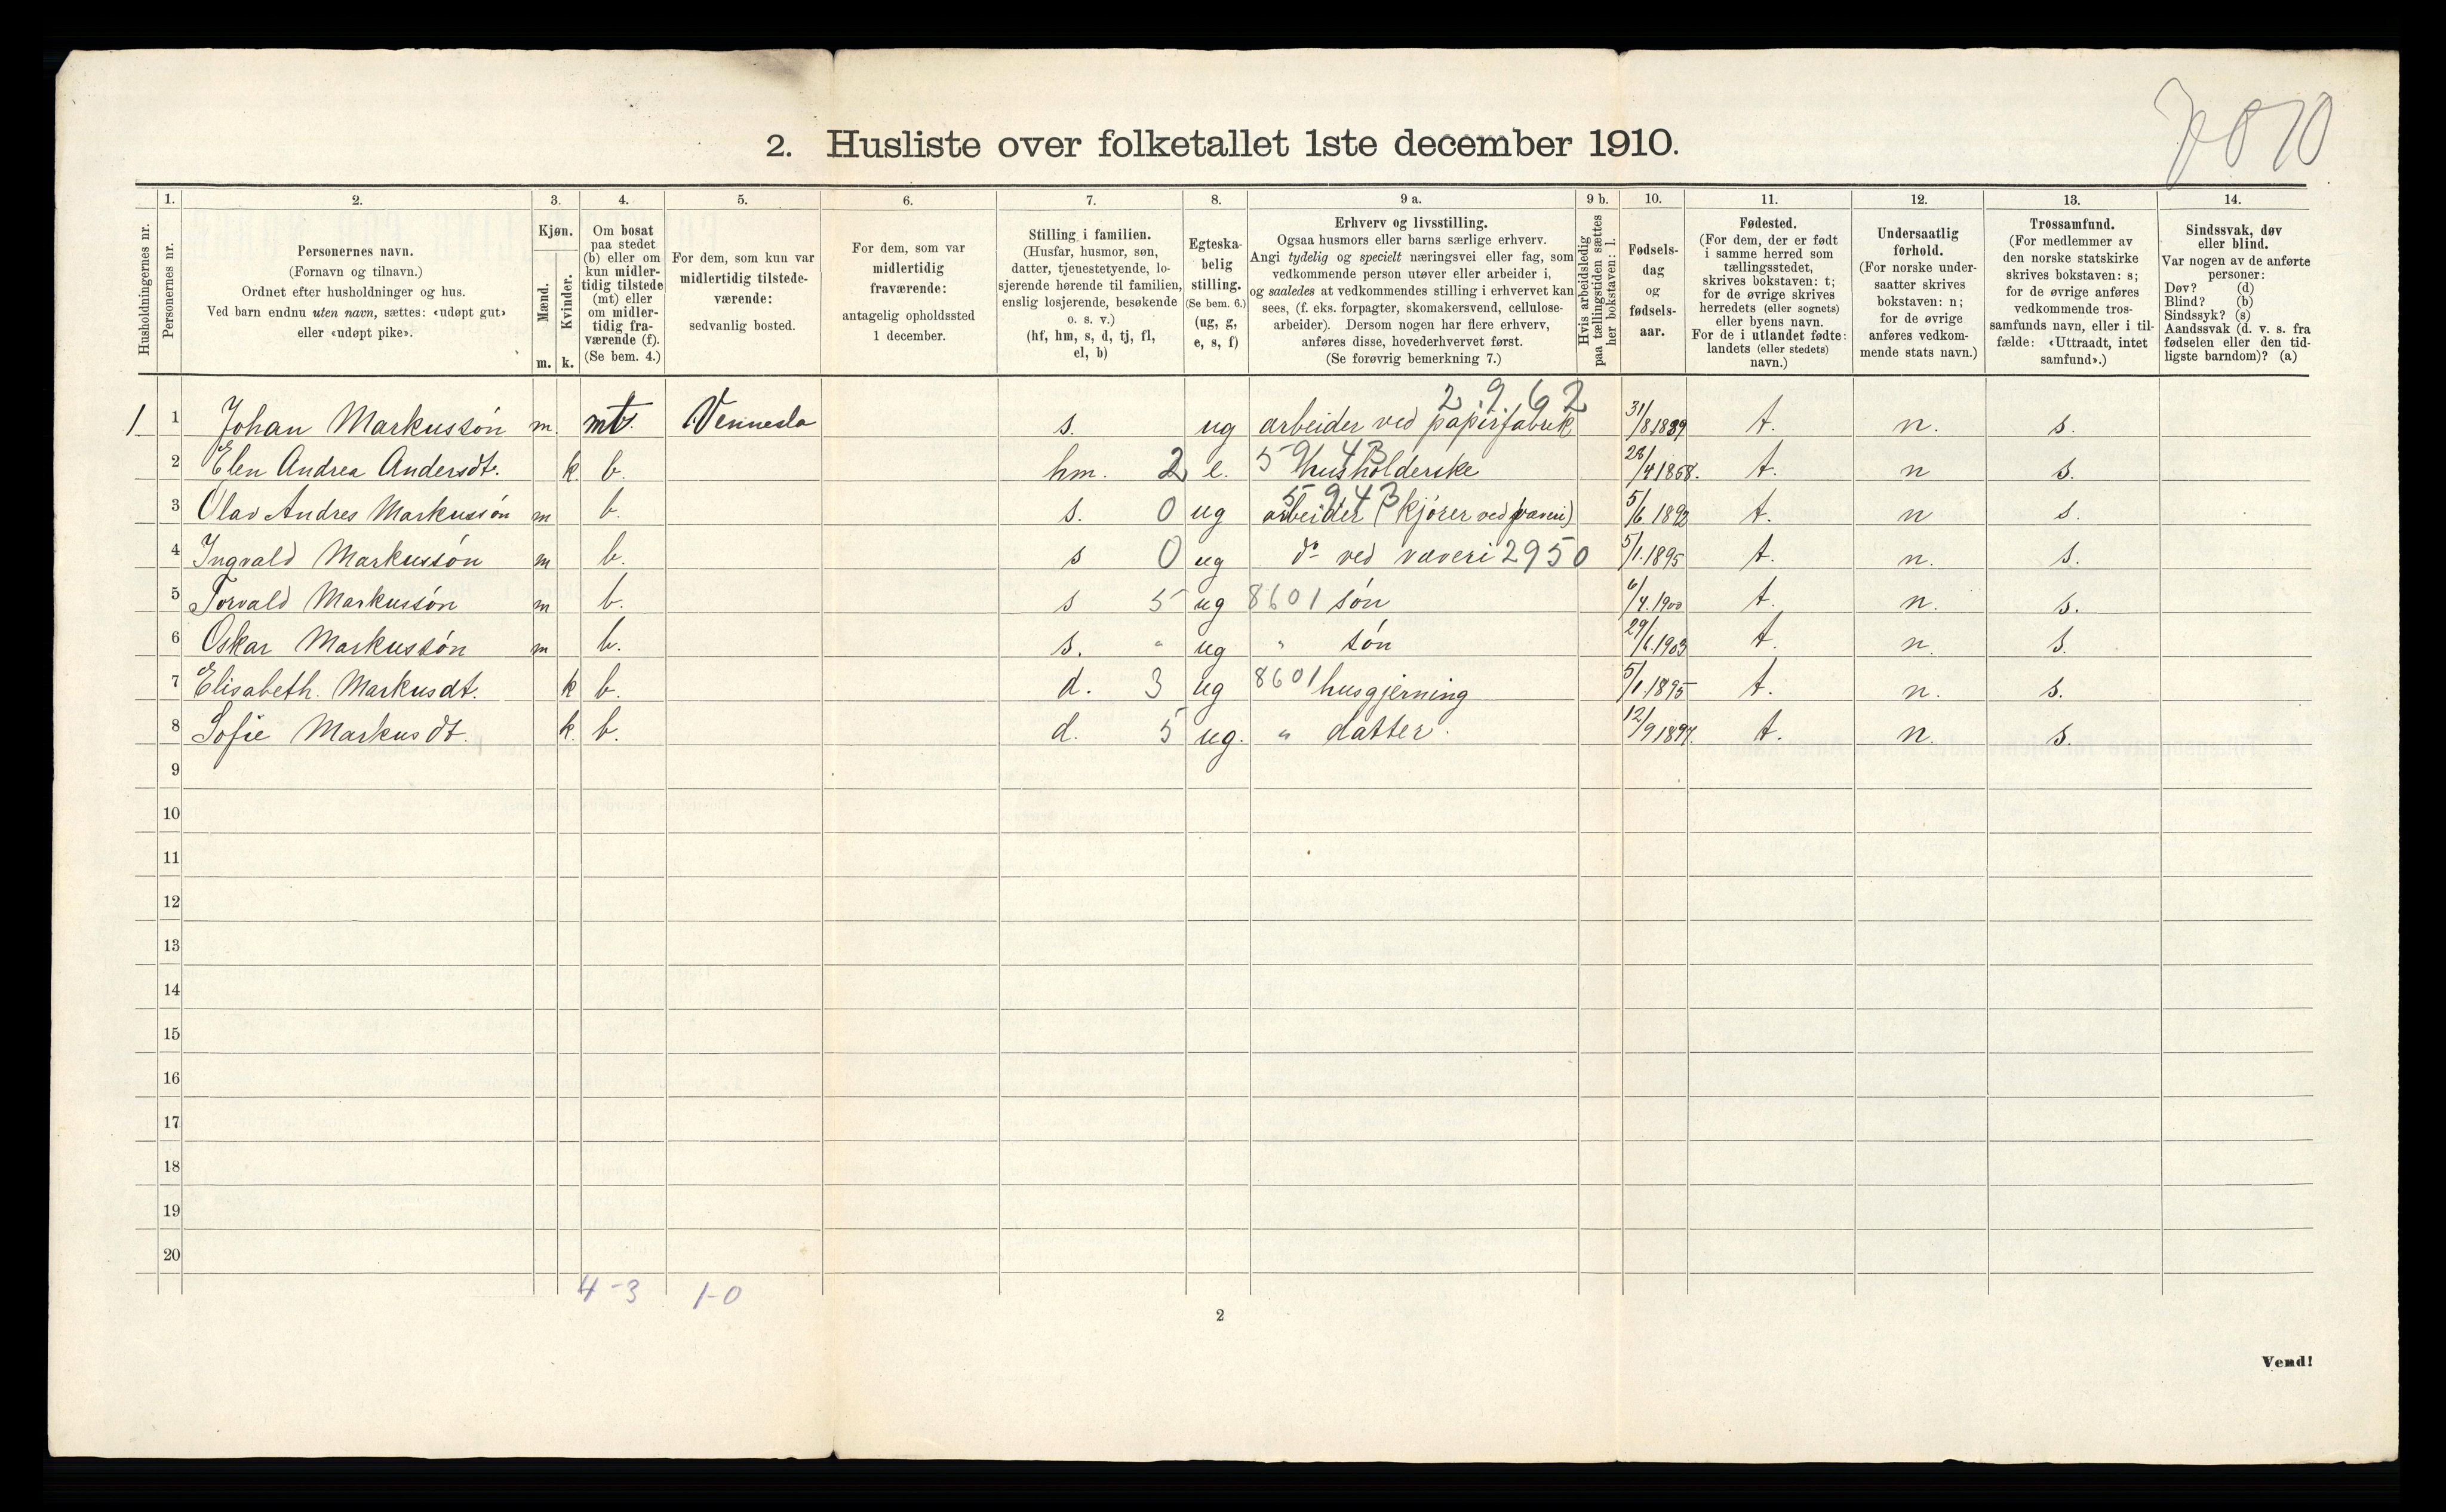 7070
2. Husliste over folketallet 1ste december 1910.
Husholdningernes nr.
1.
Personernes nr.
2.
Personernes navn.
(Fornavn og tilnavn.)
Ordnet efter husholdninger og hus.
Ved barn endnu uten navn, sættes: «udøpt gut»
eller «udøpt pike».
3.
Kjøn.
Mænd.
Kvinder.
m. k.
4.
Om bosat
paa stedet
(b) eller om
kun midler-
tidig tilstede
(mt) eller
om midler-
tidig fra-
værende (f).
(Se bem. 4.)
5.
For dem, som kun var
midlertidig tilstede-
værende:
sedvanlig bosted.
6.
For dem, som var
midlertidig
fraværende:
antagelig opholdssted
1 december.
7.
Stilling i familien.
(Husfar, husmor, søn,
datter, tjenestetyende, lo-
sjerende hørende til familien,
enslig losjerende, besøkende
o. s. v.)
(hf, hm, s, d, tj, fl,
el, b)
8.
Egteska-
belig
stilling.
(Se bem. 6.)
(ug, g,
e, s, f)
9 a.
Erhverv og livsstilling.
Ogsaa husmors eller barns særlige erhverv.
Angi tydelig og specielt næringsvei eller fag, som
vedkommende person utøver eller arbeider i,
og saaledes at vedkommendes stilling i erhvervet kan
sees, (f. eks. forpagter, skomakersvend, cellulose-
arbeider). Dersom nogen har flere erhverv,
anføres disse, hovederhvervet først.
(Se forøvrig bemerkning 7.)
9 b.
Hvis arbeidsledig
paa tællingstiden sættes
her bokstaven: l.
10.
Fødsels-
dag
og
fødsels-
aar.
11.
Fødested.
(For dem, der er født
i samme herred som
tællingsstedet,
skrives bokstaven: t;
for de øvrige skrives
herredets (eller sognets)
eller byens navn.
For de i utlandet fødte:
landets (eller stedets)
navn.)
12.
Undersaatlig
forhold.
(For norske under-
saatter skrives
bokstaven: n;
for de øvrige
anføres vedkom-
mende stats navn.)
13.
Trossamfund.
(For medlemmer av
den norske statskirke
skrives bokstaven: s;
for de øvrige anføres
vedkommende tros-
samfunds navn, eller i til-
fælde: «Uttraadt, intet
samfund».)
14.
Sindssvak, døv
eller blind.
Var nogen av de anførte
personer:
Døv? (d)
Blind? (b)
Sindssyk? (s)
Aandssvak (d. v. s. fra
fødselen eller den tid-
ligste barndom)? (a)
2962
1 1 Johan Markussøn m. mt. Vennesla s. ug arbeider ved papirfabrik 31/8 1889 t. n. s.
2 Elen Andrea Andersdt. k. b. hm. 2 e. 5943 husholderske 28/4 1868. t. n s.
3 Olav Andres Markussøn m b. s. 0 ug 5943 arbeider (kjører ved væveri) 5/6 1892 t. n s.
4 Ingvald Markussøn m b. s 0 ug do ved væveri 2950 5/1. 1895 t. n. s.
5 Torvald Markussøn m b. s 5 ug 8601 søn 6/4. 1900 t. n. s.
6 Oskar Markussøn m b. s. " ug " søn 29/6. 1903 t. n. s.
7 Elisabeth. Markusdt. k b. d. 3 ug 8601 husgjerning 5/1. 1895 t. n. s.
8 Sofie Markusdt. k. b. d. 5 ug. " datter. 12/9 1897. t. n. s.
9
10
11
12
13
14
15
16
17
18
19
20
4-3 1-0
2
Vend!